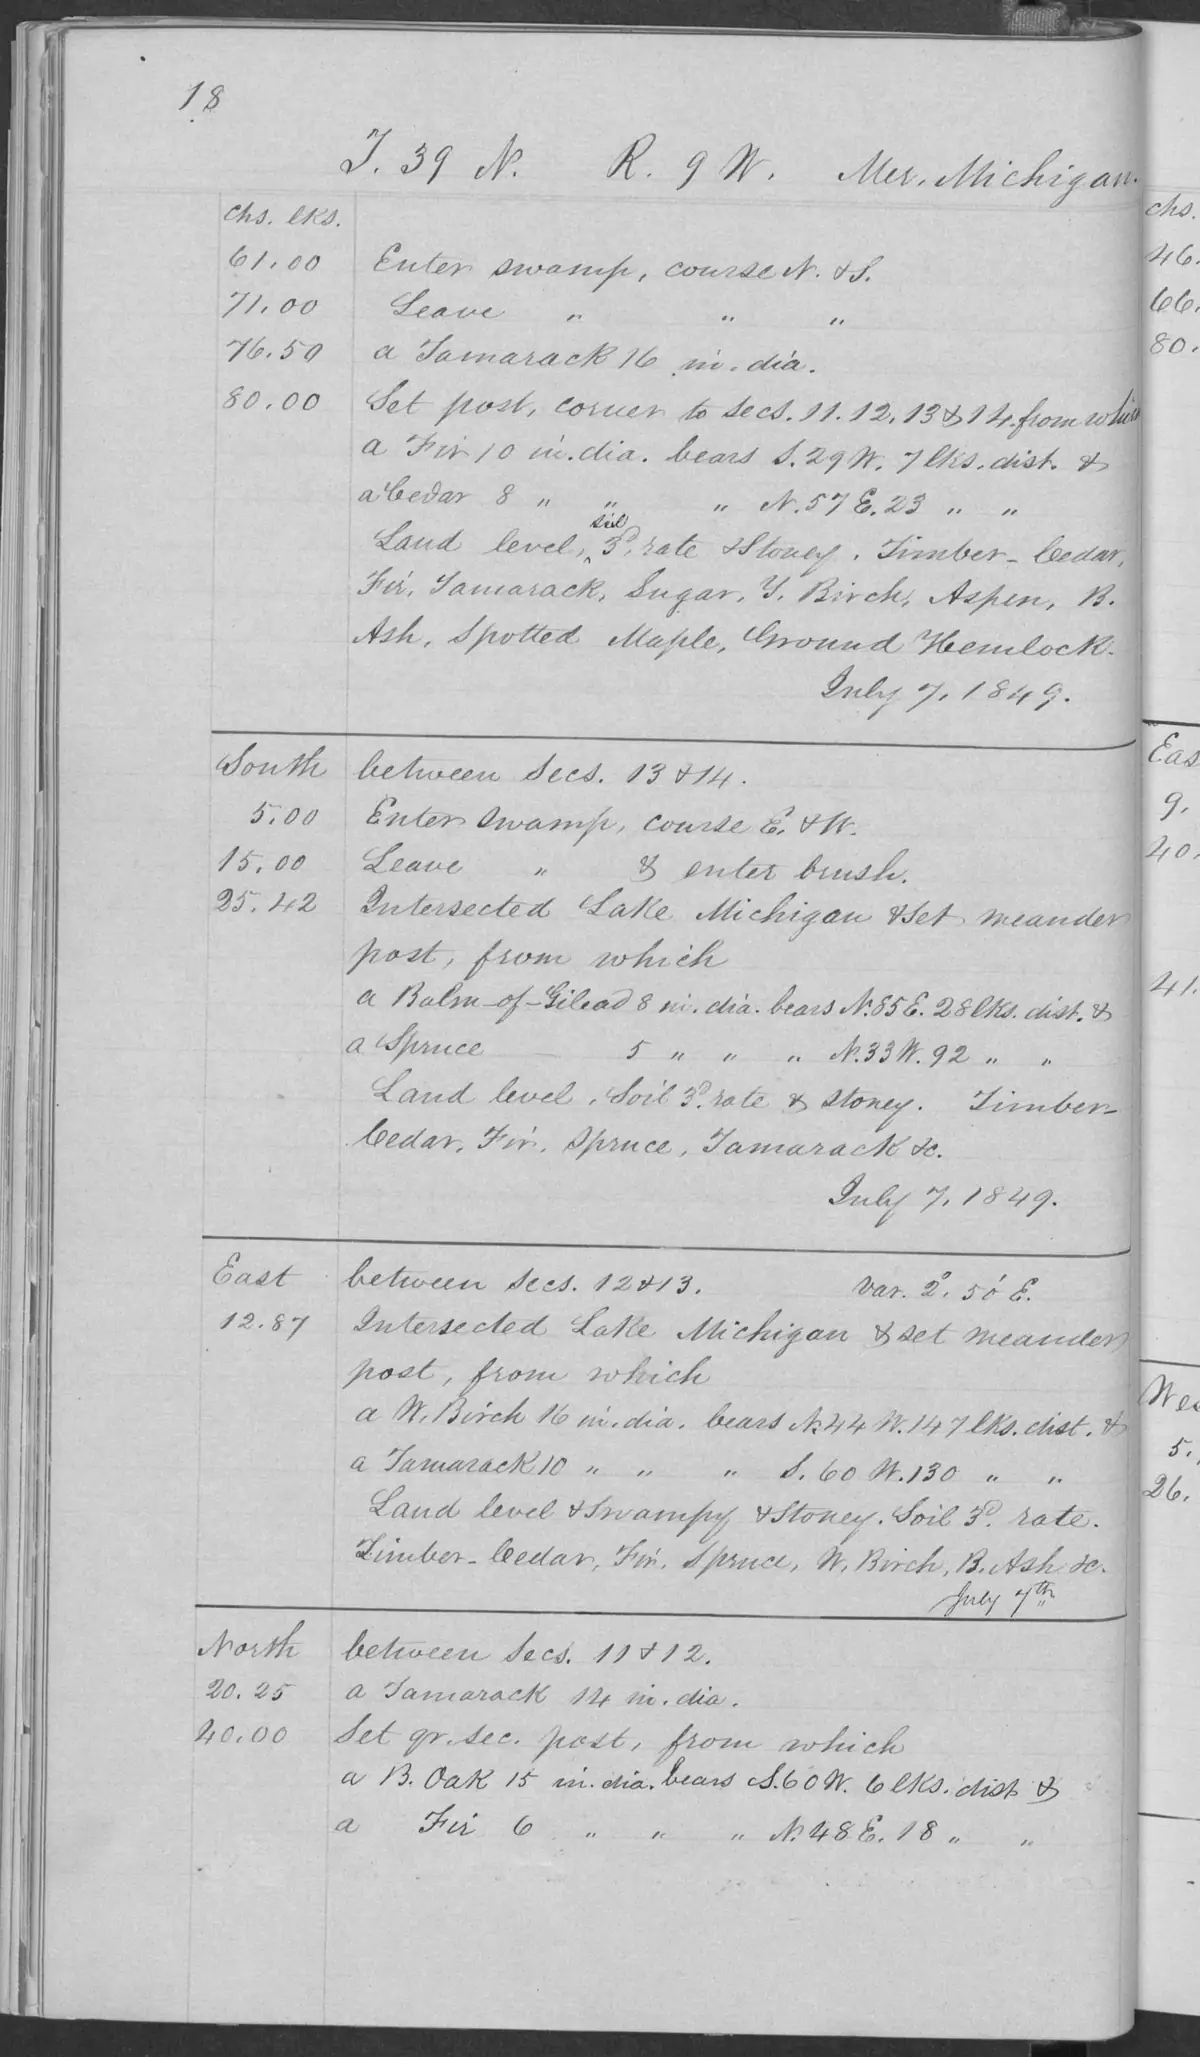 18
T. 39 N. R. 9 W. Mer. Michigan.
chs. lks.
61.00 Enter swamp, course N. & S.
71.00 Leave " " "
76.50 a Tamarack 16 in. dia.
80.00 Set post, corner to secs. 11. 12. 13 & 14. from which
a Fir 10 in. dia. bears S. 29 W. 7 lks. dist. &
a Cedar 8 " " " N. 57 E. 23 " "
soil
Land level, ^ 3d. rate & Stoney. Timber - Cedar,
Fir, Tamarack, Sugar, Y. Birch, Aspen, B.
Ash, Spotted Maple, Ground Hemlock.
July 7, 1849.
South between Secs. 13 & 14.
5.00 Enter swamp, course E. & W.
15.00 Leave " & enter brush.
25.42 Intersected Lake Michigan & set meander
post, from which
a Balm-of-Gilead 8 in. dia. bears N. 85 E. 28 lks. dist. &
a Spruce 5 " " " N. 33 W. 92 " "
Land level. Soil 3d. rate & stoney. Timber-
Cedar, Fir, Spruce, Tamarack &c.
July 7, 1849.
East between secs. 12 & 13. Var. 2° 50' E.
12.87 Intersected Lake Michigan & set meander
post, from which
a W. Birch 16 in. dia. bears N. 44 W. 147 lks. dist. &
a Tamarack 10 " " " S. 60 W. 130 " "
Land level & Swampy & Stoney. Soil 3d. rate.
Timber - Cedar, Fir, Spruce, W. Birch, B. Ash &c.
July 7th
North between Secs. 11 & 12.
20.25 a Tamarack 14 in. dia.
40.00 Set qr. sec. post, from which
a B. Oak 15 in. dia. bears S. 60 W. 6 lks. dist &
a Fir 6 " " " N. 48 E. 18 " "
chs.
46.
66.
80.
Eas
9.
40.
41.
Wes
5.
26.